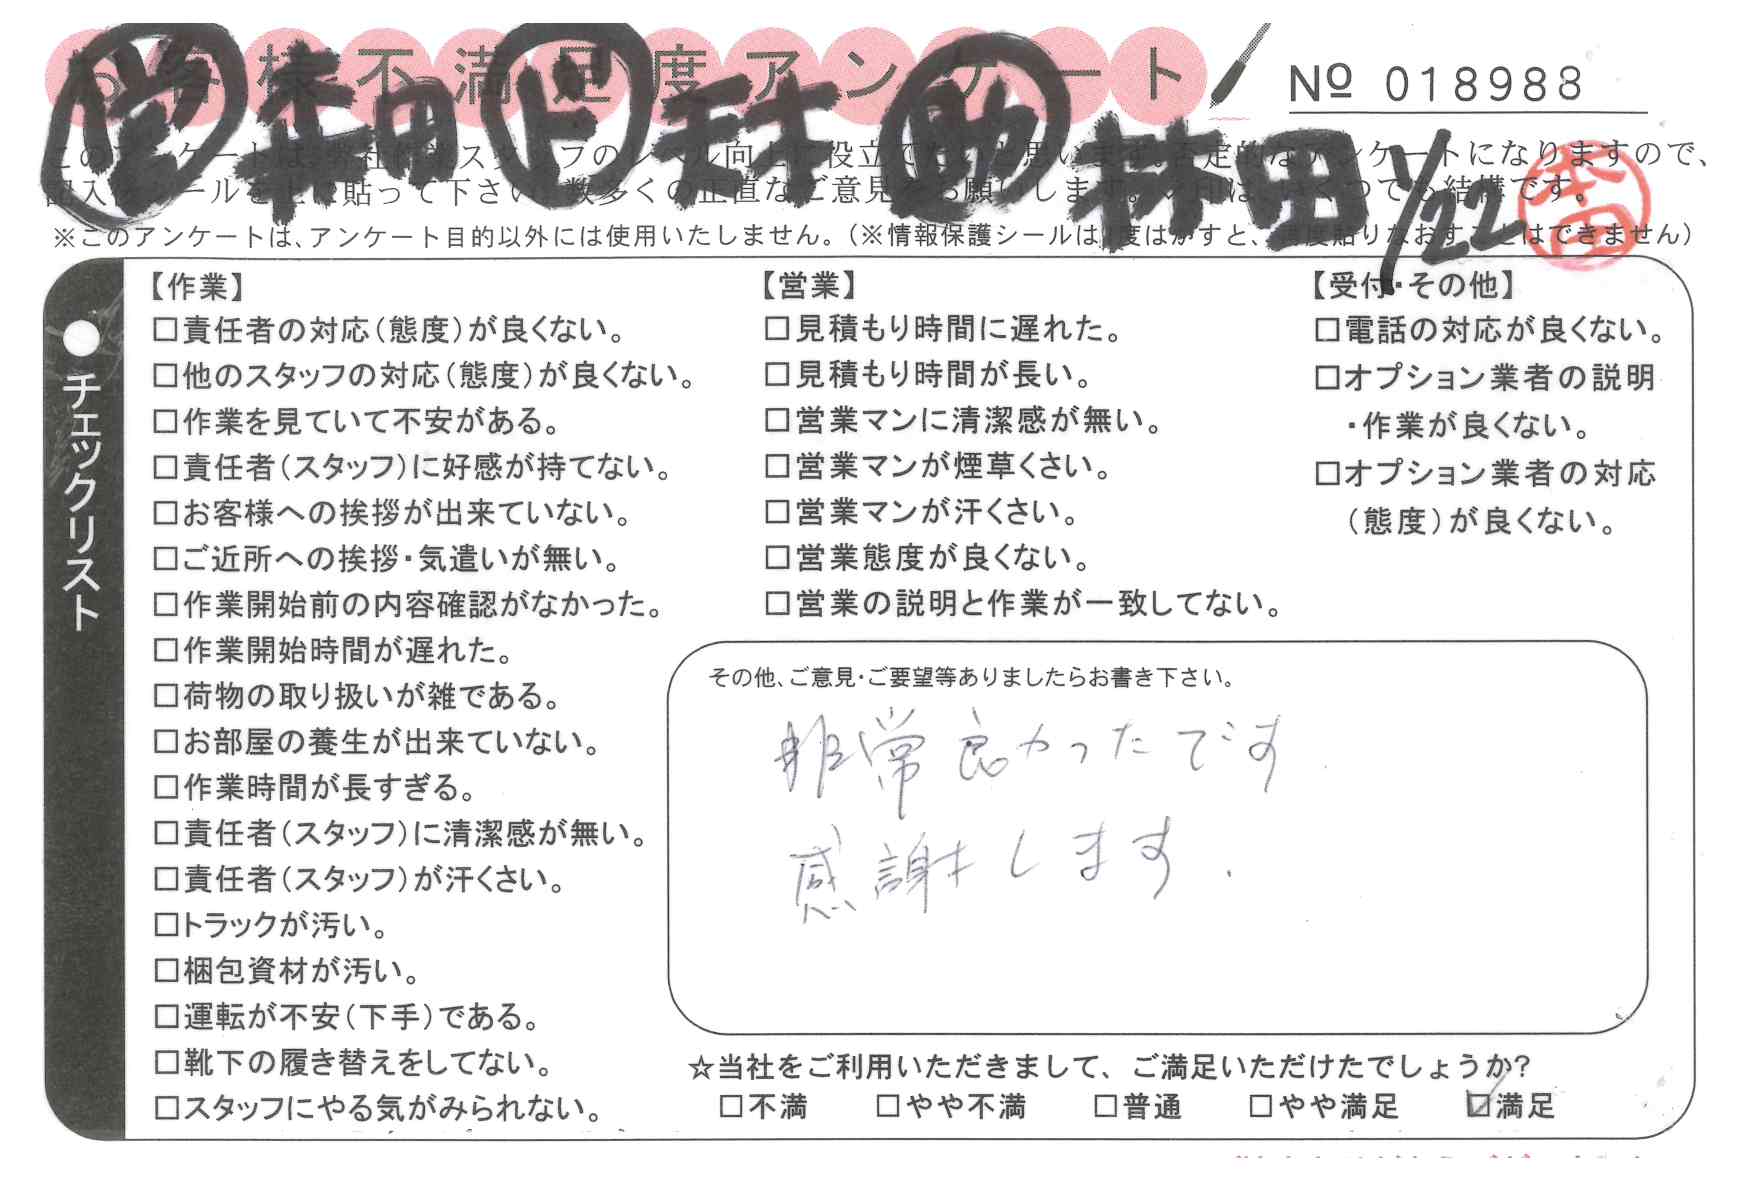 お客様不満足度アンケート
№ 018988
営 本田 ド 天才 助 林田 1/22
本田
このアンケートは、弊社作業スタッフのレベル向上に役立てたいと思います。否定的なアンケートになりますので、
記入後シールを上に貼って下さい。数多くの正直なご意見をお願いします。✓印は、いくつでも結構です。
※このアンケートは、アンケート目的以外には使用いたしません。(※情報保護シールは1度はがすと、再度貼りなおすことはできません)
●チェックリスト
【作業】
□責任者の対応(態度)が良くない。
□他のスタッフの対応(態度)が良くない。
□作業を見ていて不安がある。
□責任者(スタッフ)に好感が持てない。
□お客様への挨拶が出来ていない。
□ご近所への挨拶・気遣いが無い。
□作業開始前の内容確認がなかった。
□作業開始時間が遅れた。
□荷物の取り扱いが雑である。
□お部屋の養生が出来ていない。
□作業時間が長すぎる。
□責任者(スタッフ)に清潔感が無い。
□責任者(スタッフ)が汗くさい。
□トラックが汚い。
□梱包資材が汚い。
□運転が不安(下手)である。
□靴下の履き替えをしてない。
□スタッフにやる気がみられない。
【営業】
□見積もり時間に遅れた。
□見積もり時間が長い。
□営業マンに清潔感が無い。
□営業マンが煙草くさい。
□営業マンが汗くさい。
□営業態度が良くない。
□営業の説明と作業が一致してない。
【受付・その他】
□電話の対応が良くない。
□オプション業者の説明
・作業が良くない。
□オプション業者の対応
(態度)が良くない。
その他、ご意見・ご要望等ありましたらお書き下さい。
非常良かったです
感謝します.
☆当社をご利用いただきまして、ご満足いただけたでしょうか?
□不満 □やや不満 □普通 □やや満足 ☑満足